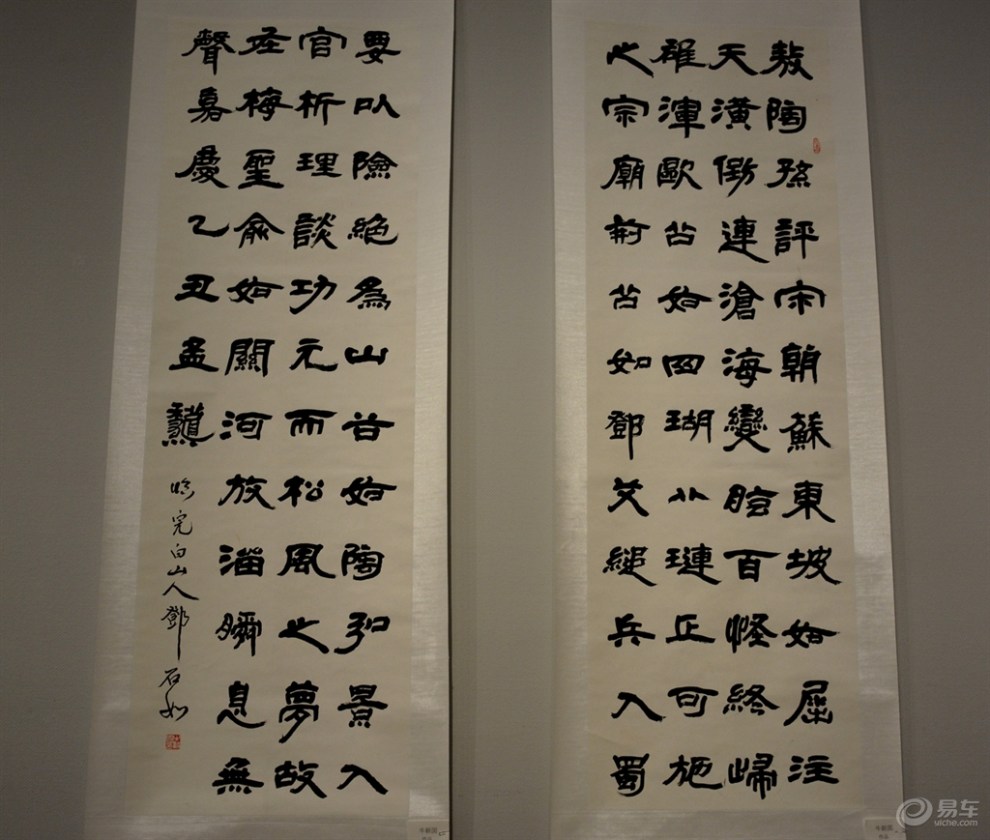 敖陶孫評宋朝蘇東坡如屈注
天潢倒連滄海變眩百怪終歸
雄渾歐公如四瑚八璉正可施
之宗廟荊公如鄧艾縋兵入蜀
要以險絕為山谷如陶弘景入
官析理談功元而松風之夢故
在梅聖俞如關河放溜瞬息無
聲嘉慶乙丑孟
臨完白山人鄧石如
易车
yiche.com